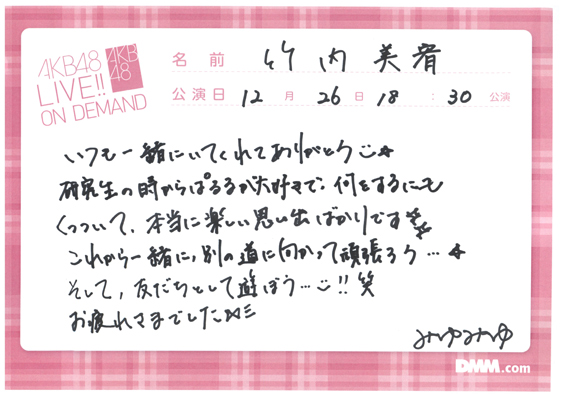 AKB48
LIVE!!
ON DEMAND
AKB
48
名前 竹内美宥
公演日 12月26日18:30公演
いつも一緒にいてくれてありがとう
研究生の時からぱるるが大好きで、何をするにも
くっついて、本当に楽しい思い出ばかりです
これから一緒に、別の道に向かって頑張ろう…
そして、友だちとして遊ぼう…!!笑
お疲れさまでした
みゆみゆ
DMM.com